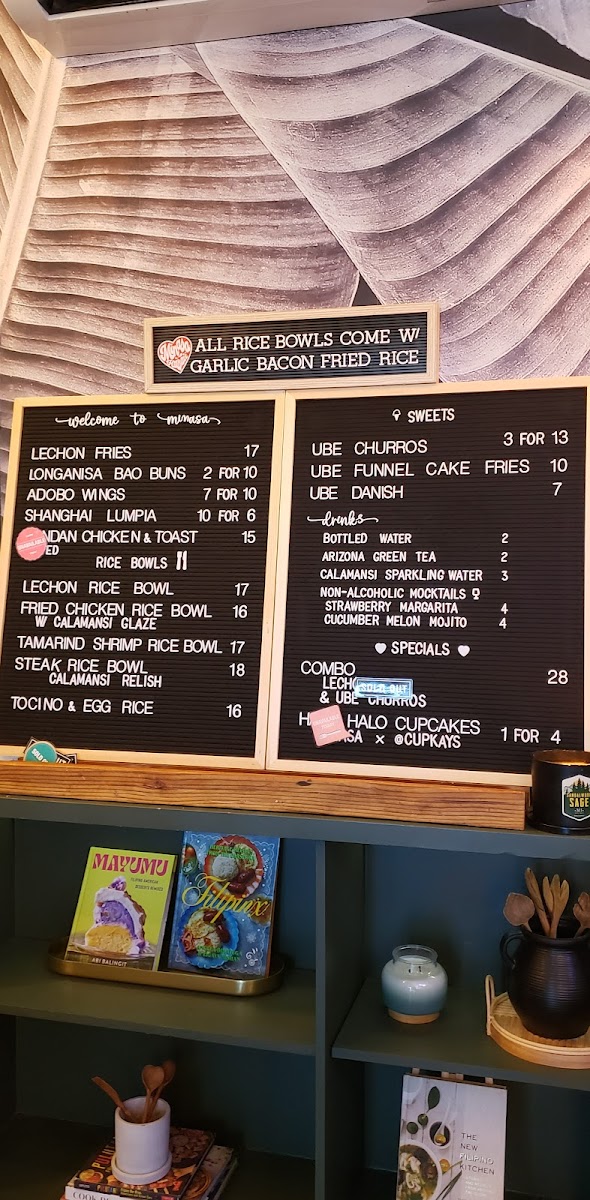 ALL RICE BOWLS COME W/
GARLIC BACON FRIED RICE
welcome to minasa
LECHON FRIES 17
LONGANISA BAO BUNS 2 FOR 10
ADOBO WINGS 7 FOR 10
SHANGHAI LUMPIA 10 FOR 6
NDAN CHICKEN & TOAST 15
ED
RICE BOWLS
LECHON RICE BOWL 17
FRIED CHICKEN RICE BOWL 16
W/ CALAMANSI GLAZE
TAMARIND SHRIMP RICE BOWL 17
STEAK RICE BOWL 18
CALAMANSI RELISH
TOCINO & EGG RICE 16
SWEETS
UBE CHURROS 3 FOR 13
UBE FUNNEL CAKE FRIES 10
UBE DANISH 7
drinks
BOTTLED WATER 2
ARIZONA GREEN TEA 2
CALAMANSI SPARKLING WATER 3
NON-ALCOHOLIC MOCKTAILS
STRAWBERRY MARGARITA 4
CUCUMBER MELON MOJITO 4
SPECIALS
COMBO 28
LECHO
SOLD OUT
& UBE CHURROS
H HALO CUPCAKES
SA x @CUPKAYS 1 FOR 4
SOLD
SANDALWOOD
SAGE
MAYUMU
FILIPINO AMERICAN
DESSERTS REMIXED
ABI BALINGIT
Filipinx
THE
NEW
FILIPINO
KITCHEN